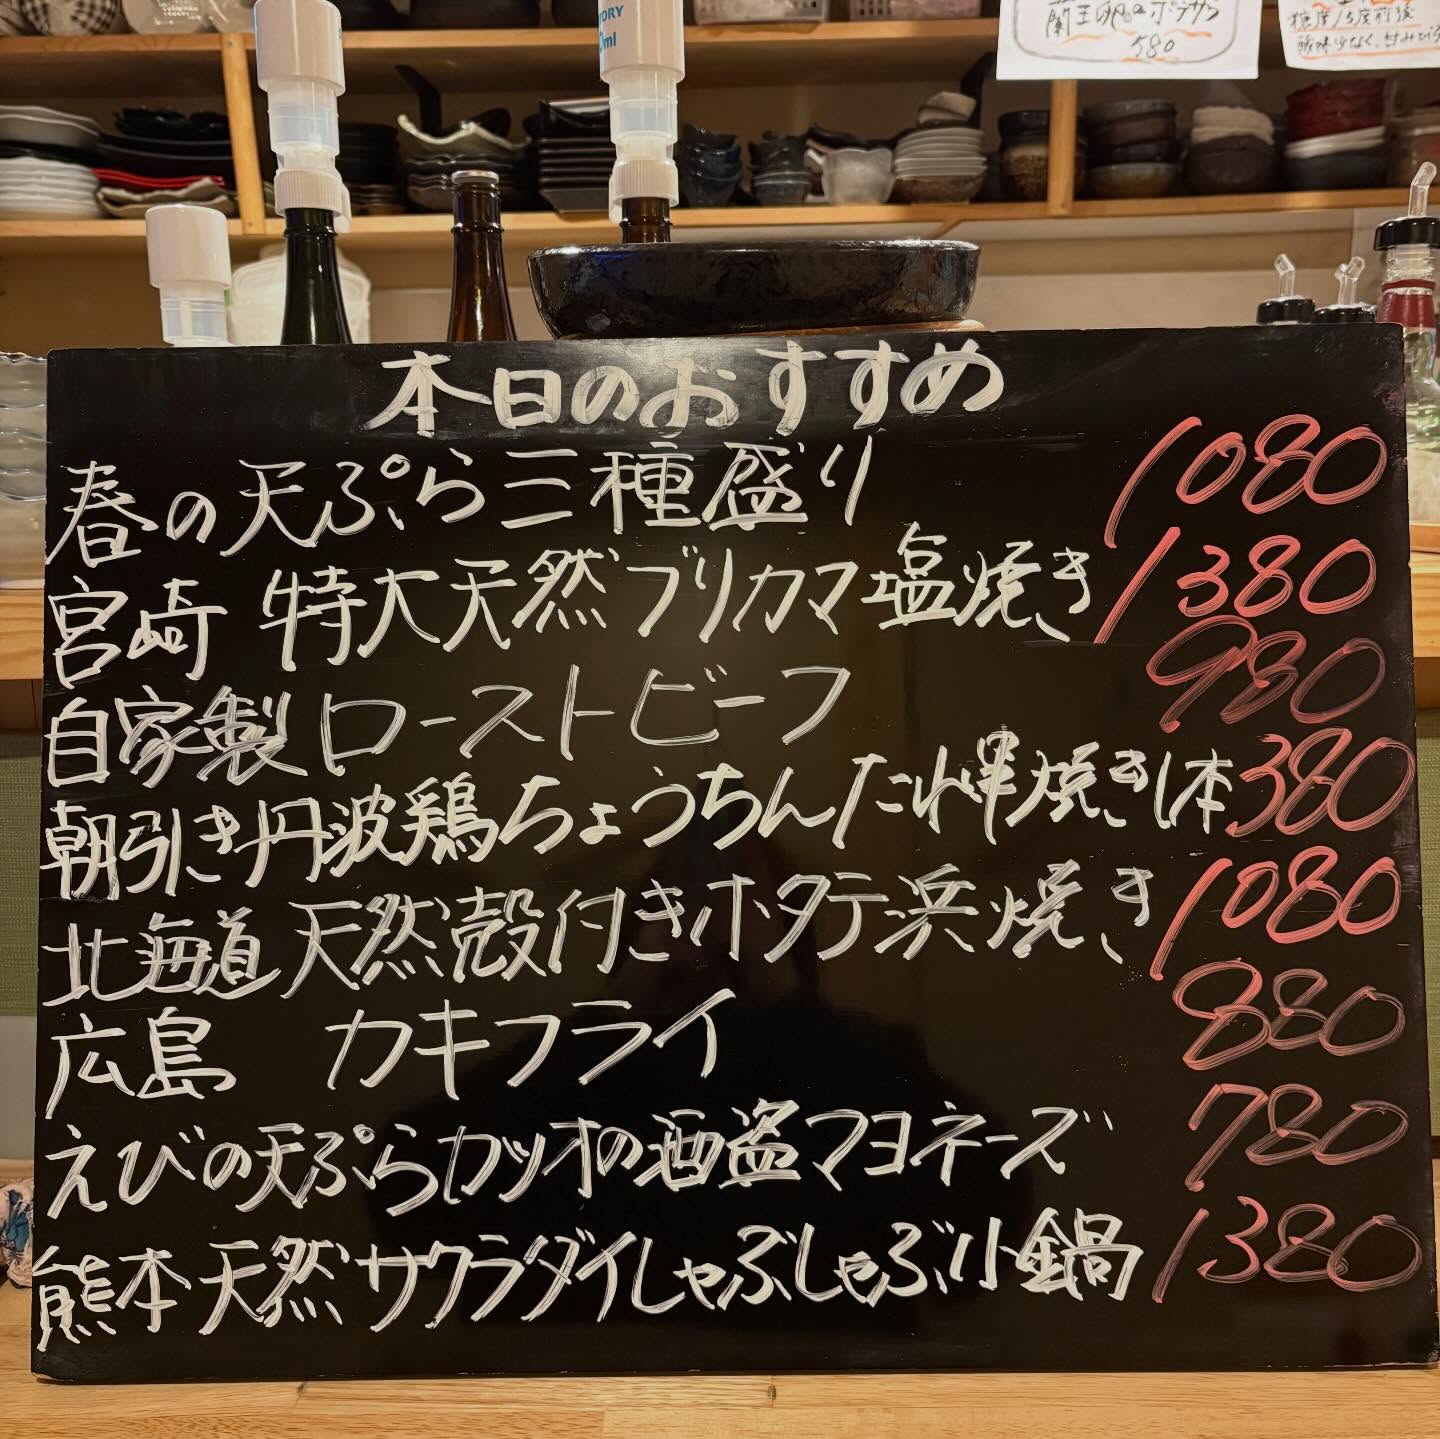 蘭王卵のポテサラ
580
糖度13度前後
本日のおすすめ
春の天ぷら三種盛り 1080
宮崎 特大天然ブリカマ塩焼き 1380
自家製ローストビーフ 980
朝引き丹波鶏ちょうちんたれ串焼き1本 380
北海道天然殻付きホタテ浜焼き 1080
広島 カキフライ 880
えびの天ぷらカツオの酒盗マヨネーズ 780
熊本天然サクラダイしゃぶしゃぶ小鍋 1380